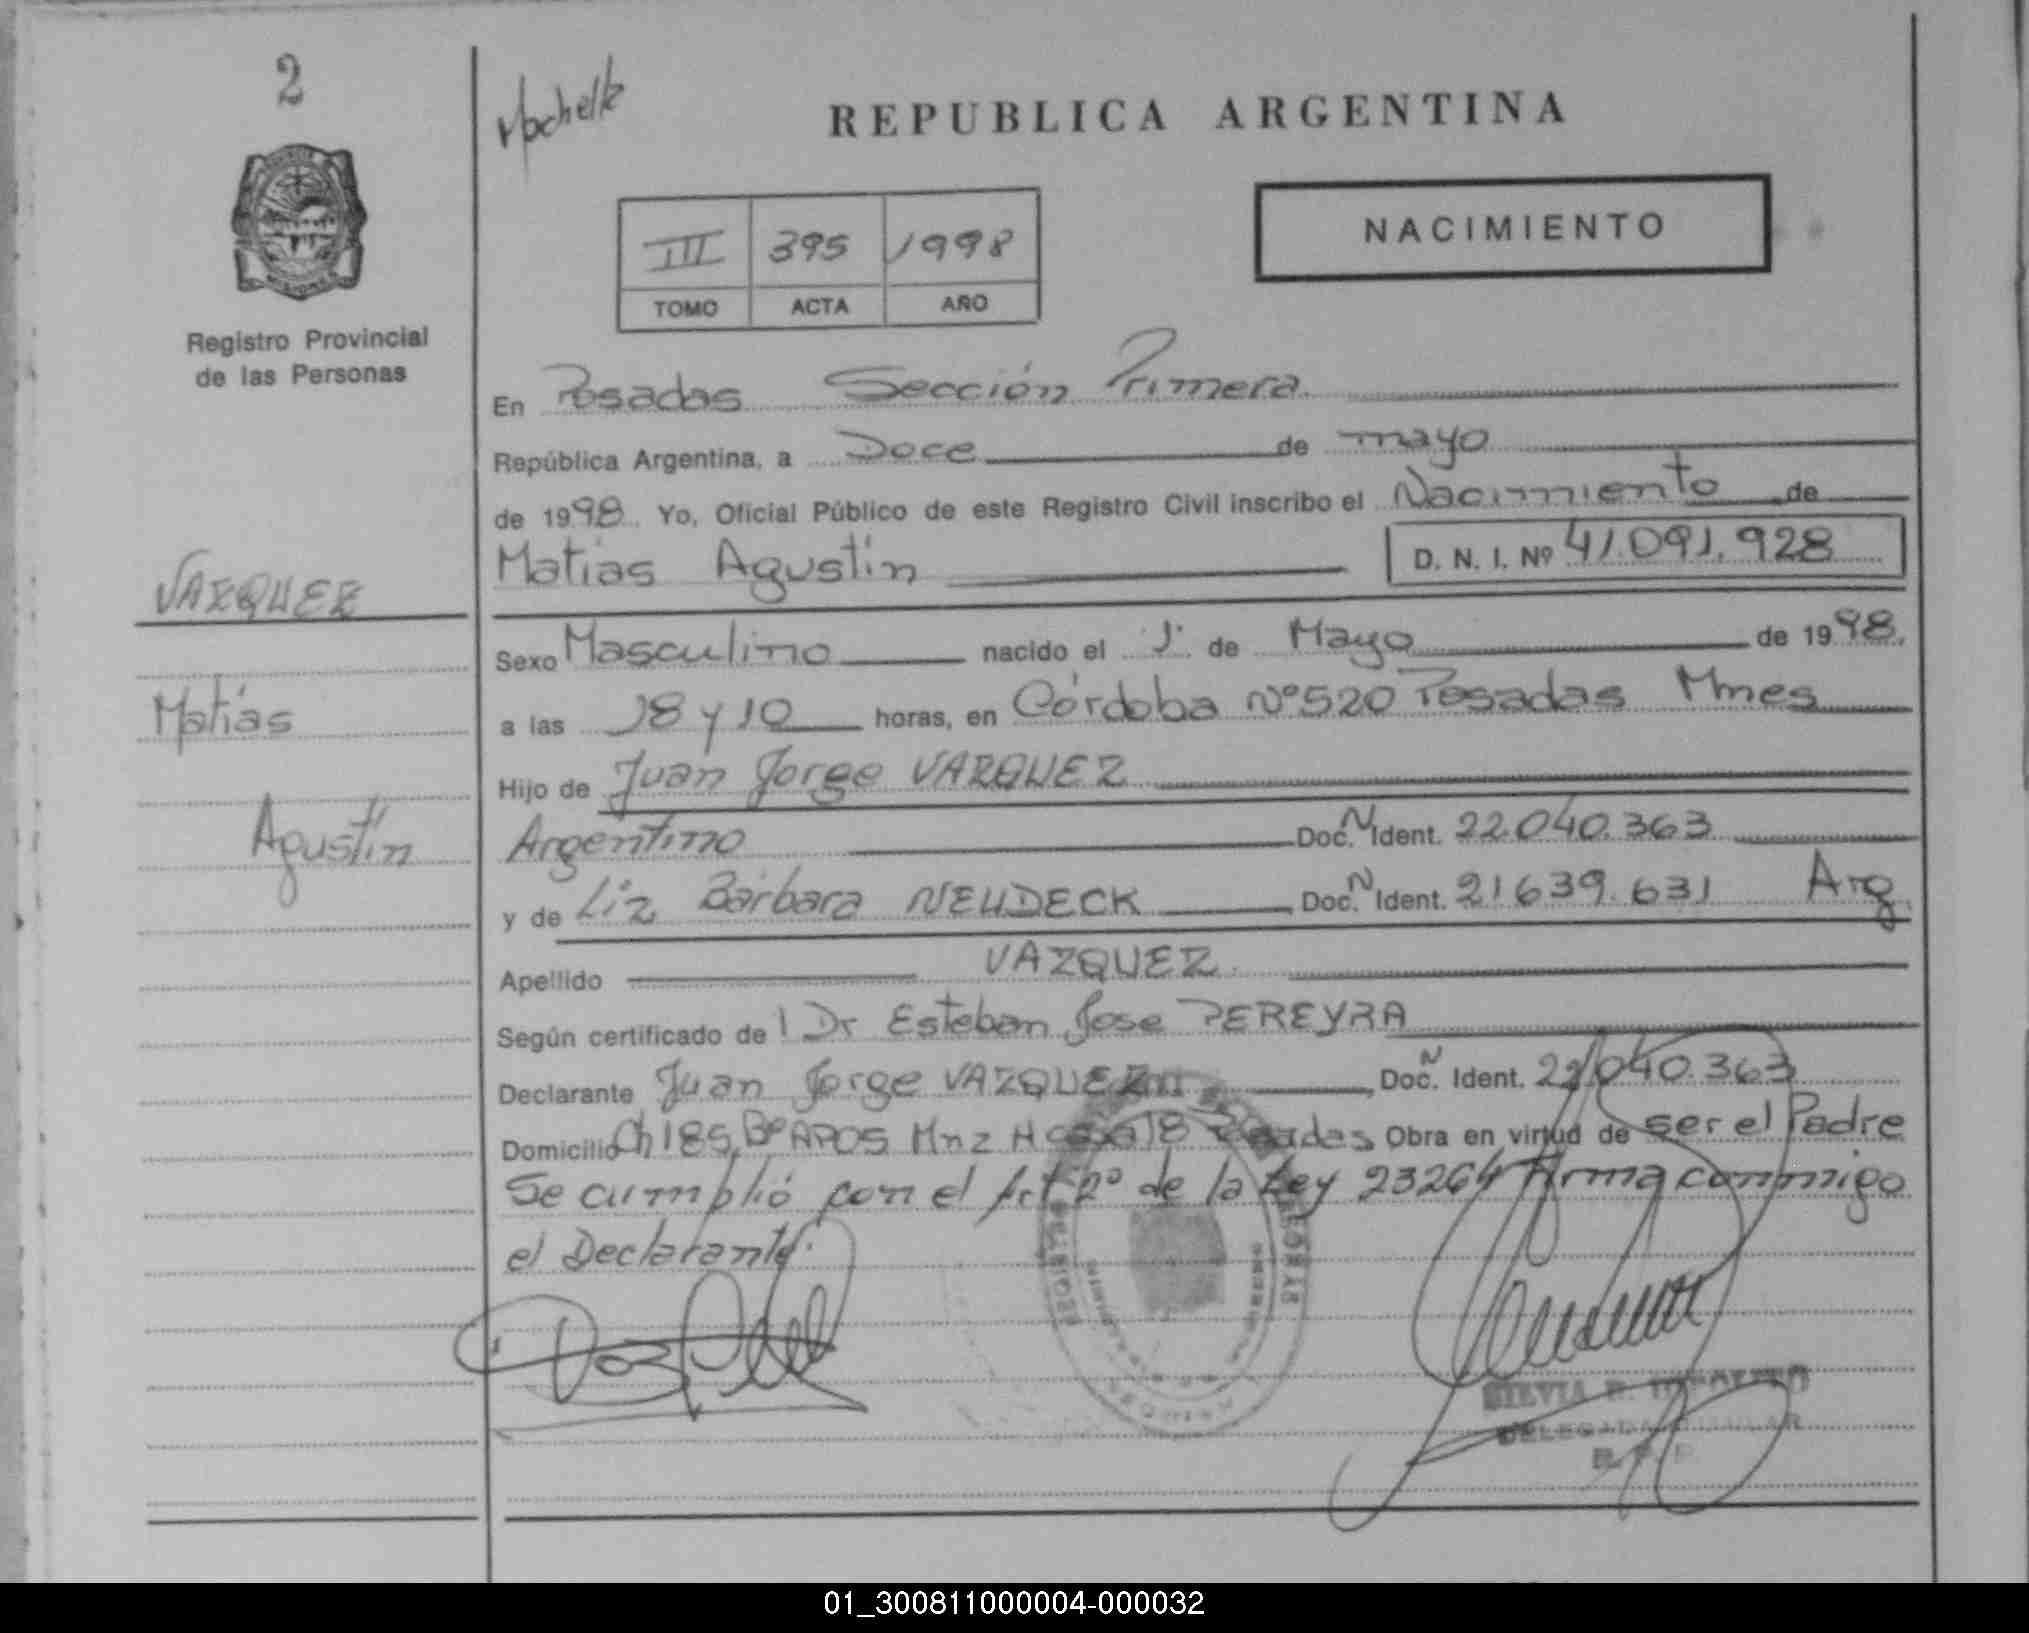 2
REPUBLICA ARGENTINA
NACIMIENTO
III 395 1998
TOMO ACTA AÑO
Registro Provincial
de las Personas
En Posadas Sección Primera
República Argentina, a Doce de mayo
de 1998. Yo, Oficial Público de este Registro Civil inscribo el Nacimiento de
Matias Agustín D. N. I. Nº 41.091.928
VAZQUEZ
Matías
Agustín
Sexo Masculino nacido el 1º de Mayo de 1998.
a las 18 y 10 horas, en Córdoba Nº 520 Posadas Mnes
Hijo de Juan Jorge VAZQUEZ
Argentino Doc. N Ident. 22.040.363
y de Liz Bárbara NEUDECK Doc. N Ident. 21639.631 Arg.
Apellido VAZQUEZ
Según certificado de l Dr Esteban Jose PEREYRA
Declarante Juan Jorge VAZQUEZ, Doc. N Ident. 22.040.363
Domicilio Ch 185 Bº APOS Mnz H casa 18 Posadas Obra en virtud de ser el Padre
Se cumplió con el Art 2º de la Ley 23264 Firma conmigo
el Declarante.
SILVIA
DELEGADA TITULAR
R. P. P.
01_300811000004-000032